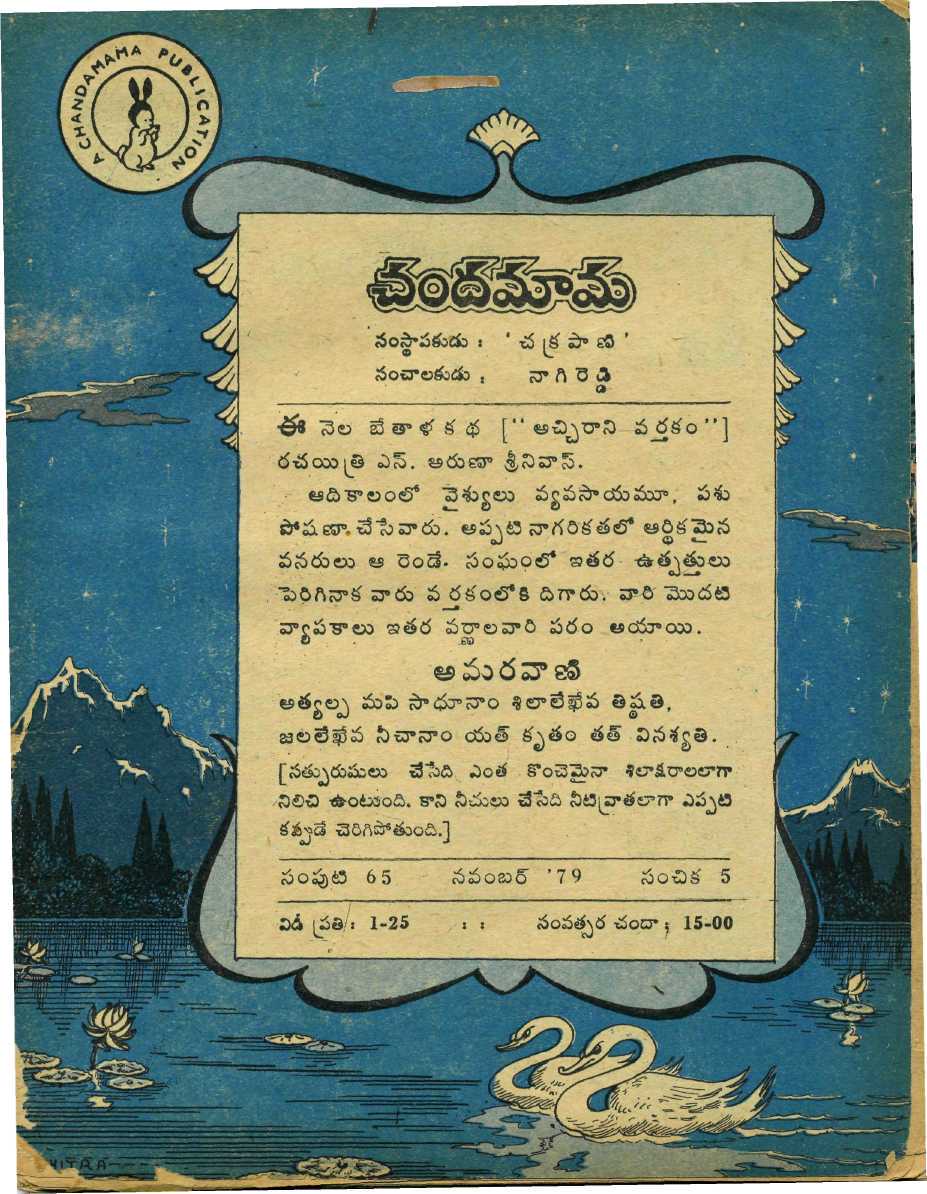 A CHANDAMAMA PUBLICATION
చందమామ
సంస్థాపకుడు : ' చక్రపాణి '
సంచాలకుడు : నాగిరెడ్డి
ఈ నెల బేతాళకథ ["అచ్చిరాని వర్తకం"]
రచయిత్రి ఎస్. అరుణా శ్రీనివాస్.
ఆదికాలంలో వైశ్యులు వ్యవసాయమూ, పశు
పోషణా చేసేవారు. అప్పటి నాగరికతలో ఆర్థికమైన
వనరులు ఆ రెండే. సంఘంలో ఇతర ఉత్పత్తులు
పెరిగినాక వారు వర్తకంలోకి దిగారు. వారి మొదటి
వ్యాపకాలు ఇతర వర్ణాలవారి పరం అయాయి.
అమరవాణి
అత్యల్ప మపి సాధూనాం శిలాలేఖేవ తిష్ఠతి,
జలలేఖేవ నీచానాం యత్ కృతం తత్ వినశ్యతి.
[సత్పురుషులు చేసేది ఎంత కొంచెమైనా శిలాక్షరాలలాగా
నిలిచి ఉంటుంది. కాని నీచులు చేసేది నీటివ్రాతలాగా ఎప్పటి
కప్పుడే చెరిగిపోతుంది.]
సంపుటి 65 నవంబర్ '79 సంచిక 5
విడి ప్రతి : 1-25 : : సంవత్సర చందా : 15-00